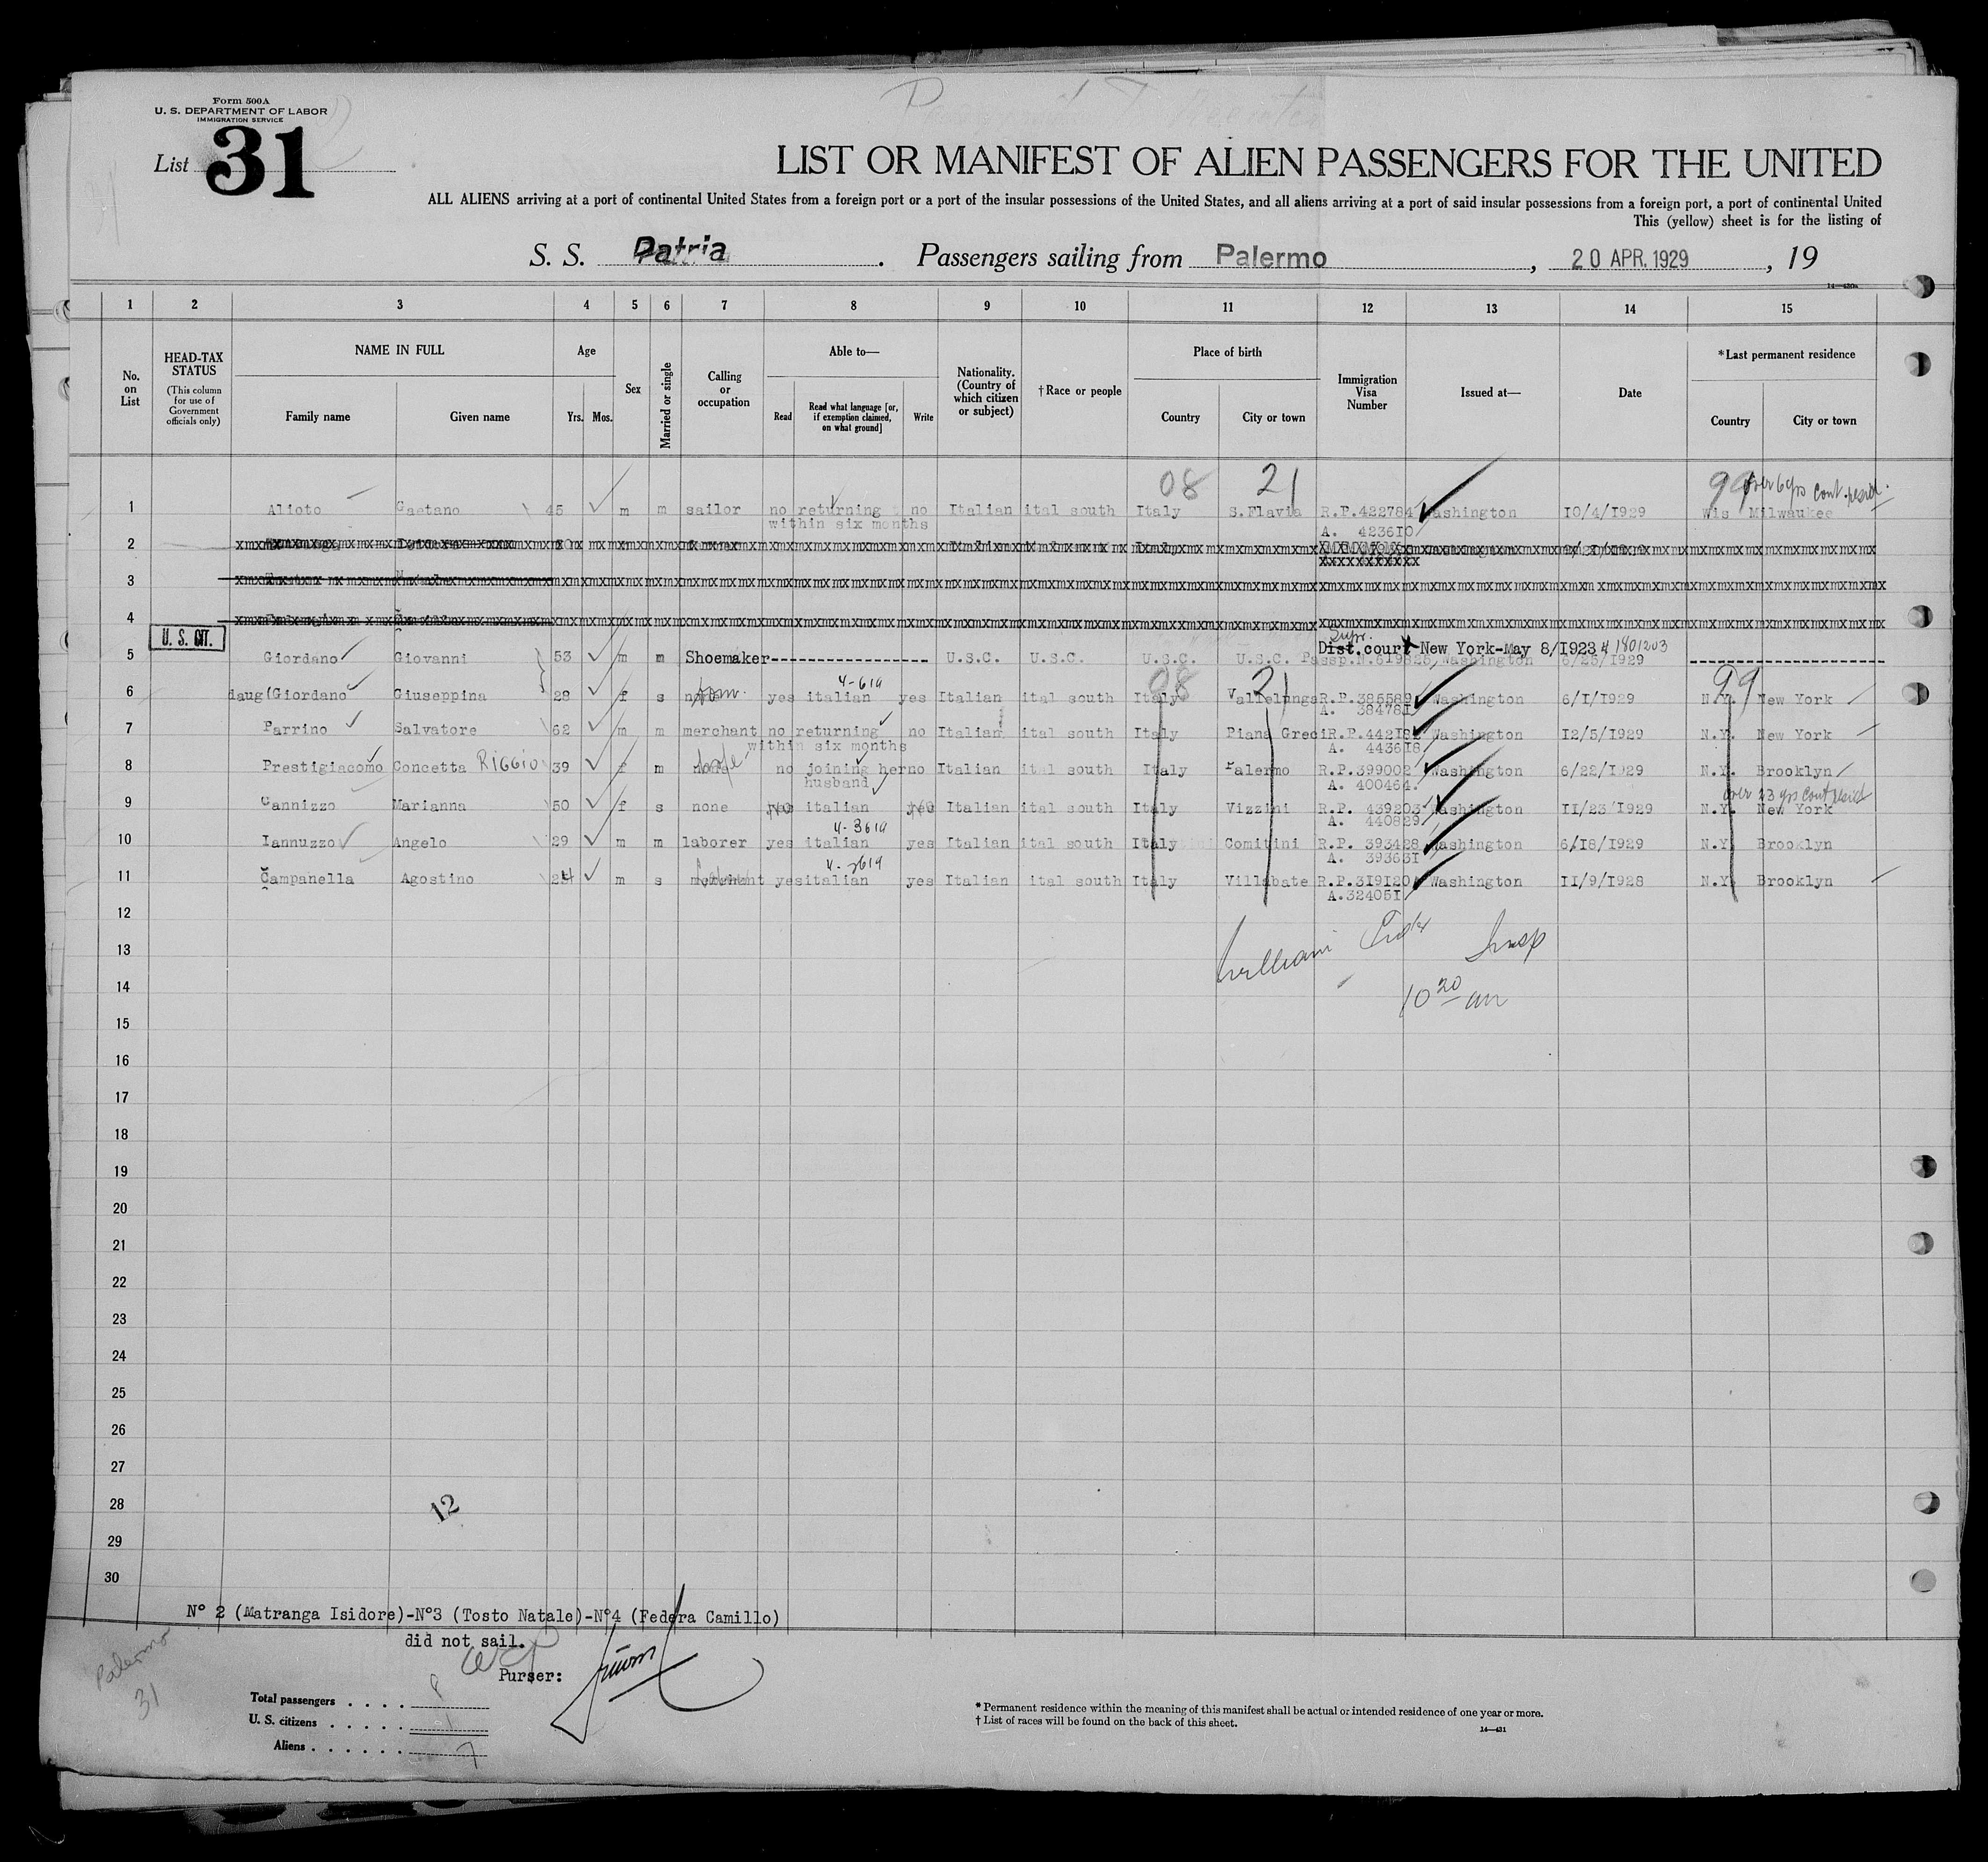 Form 500A
U. S. DEPARTMENT OF LABOR
IMMIGRATION SERVICE
List 31
LIST OR MANIFEST OF ALIEN PASSENGERS FOR THE UNITED
ALL ALIENS arriving at a port of continental United States from a foreign port or a port of the insular possessions of the United States, and all aliens arriving at a port of said insular possessions from a foreign port, a port of continental United
This (yellow) sheet is for the listing of
S. S. Patria . Passengers sailing from Palermo , 20 APR. 1929 , 19
1 2 3 4 5 6 7 8 9 10 11 12 13 14 15
No. on List
HEAD-TAX STATUS
(This column for use of Government officials only)
NAME IN FULL
Family name
Given name
Age
Yrs. Mos.
Sex
Married or single
Calling or occupation
Able to—
Read
Read what language [or, if exemption claimed, on what ground]
Write
Nationality. (Country of which citizen or subject)
† Race or people
Place of birth
Country
City or town
Immigration Visa Number
Issued at—
Date
* Last permanent residence
Country
City or town
08 21 99 over 6 yrs cont. resid.
1 Alioto Gaetano 45 m m sailor no returning no Italian ital south Italy S.Flavia R.P.422784 Washington 10/4/1929 Wis Milwaukee
within six months A. 423610
2
3
4
U. S. CIT.
Dist. court New York-May 8/1923 1801203
5 Giordano Giovanni 53 m m Shoemaker U.S.C. U.S.C. U.S.C. U.S.C. Passp.N.619825, Washington 6/25/1929
4-619 08 21 99
6 daug (Giordano Giuseppina 28 f s yes italian yes Italian ital south Italy Vallelunga R.P.385589 Washington 6/1/1929 N.Y. New York
A. 384781
7 Parrino Salvatore 62 m m merchant no returning no Italian ital south Italy Piana Greci R.P.44218 Washington 12/5/1929 N.Y. New York
within six months A. 443618
8 Prestigiacomo Concetta RIGGIO 39 f m none no joining her no Italian ital south Italy Palermo R.P.399002 Washington 6/22/1929 N.Y. Brooklyn
husband A. 400464.
over 23 yrs cont resid
9 Cannizzo Marianna 50 f s none no italian no Italian ital south Italy Vizzini R.P. 439203 Washington 11/23/1929 N.Y. New York
4-3619 A. 440829
10 Iannuzzo Angelo 29 m m laborer yes italian yes Italian ital south Italy Comitini R.P. 393428 Washington 6/18/1929 N.Y. Brooklyn
4-3619 A. 393631
11 Campanella Agostino 24 m s yes italian yes Italian ital south Italy Villabate R.P.319120 Washington 11/9/1928 N.Y. Brooklyn
A.324051
12
13 William Insp
14 10 20 am
15
16
17
18
19
20
21
22
23
24
25
26
27
28 12
29
30
N° 2 (Matranga Isidore)-N°3 (Tosto Natale)-N°4 (Federa Camillo)
did not sail.
Purser:
Palermo
31
Total passengers . . . . 8
U. S. citizens . . . . . 1
Aliens . . . . . . 7
* Permanent residence within the meaning of this manifest shall be actual or intended residence of one year or more.
† List of races will be found on the back of this sheet.
14—431